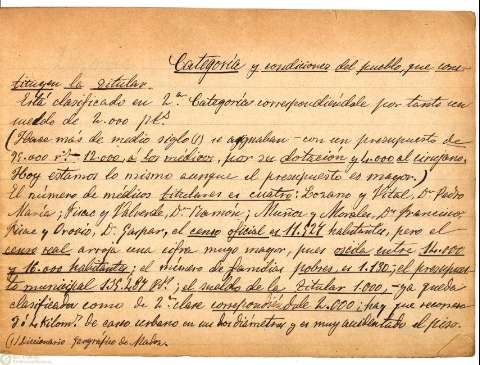 Categoría y condiciones del pueblo, que cons-
tituyen la titular.
Está clasificado en 2ª Categoría correspondiéndole por tanto un
sueldo de 2.000 ptˢ.
(Hace más de medio siglo (1) se asignaban – con un presupuesto de
95.000 rˢ – 12.000, a los médicos, por su dotación y 4.000 al cirujano.
Hoy estamos lo mismo aunque el presupuesto es mayor.)
El número de medicos titulares es cuatro: Lozano y Vital, Dⁿ Pedro
María; Picac y Valverde, Dⁿ Ramón; Muñoz y Morales, Dⁿ Francisco;
y Orovio, Dⁿ Gaspar, el censo oficial es 11.527 habitantes, pero el
censo real arroja una cifra muy mayor, pues oscila entre 14.000
y 16.000 habitantes; el número de familias pobres es 1.130; el presupues
to municipal 135.487 ptˢ; el sueldo de la titular 1.000, – ya queda
clasificada como de 2ª clase correspondiéndole 2.000; hay que recorrer
3 ó 4 Kilomˢ de casco urbano en sus dos diámetros y es muy accidentado el piso.
(1) Diccionario geográfico de Madoz.